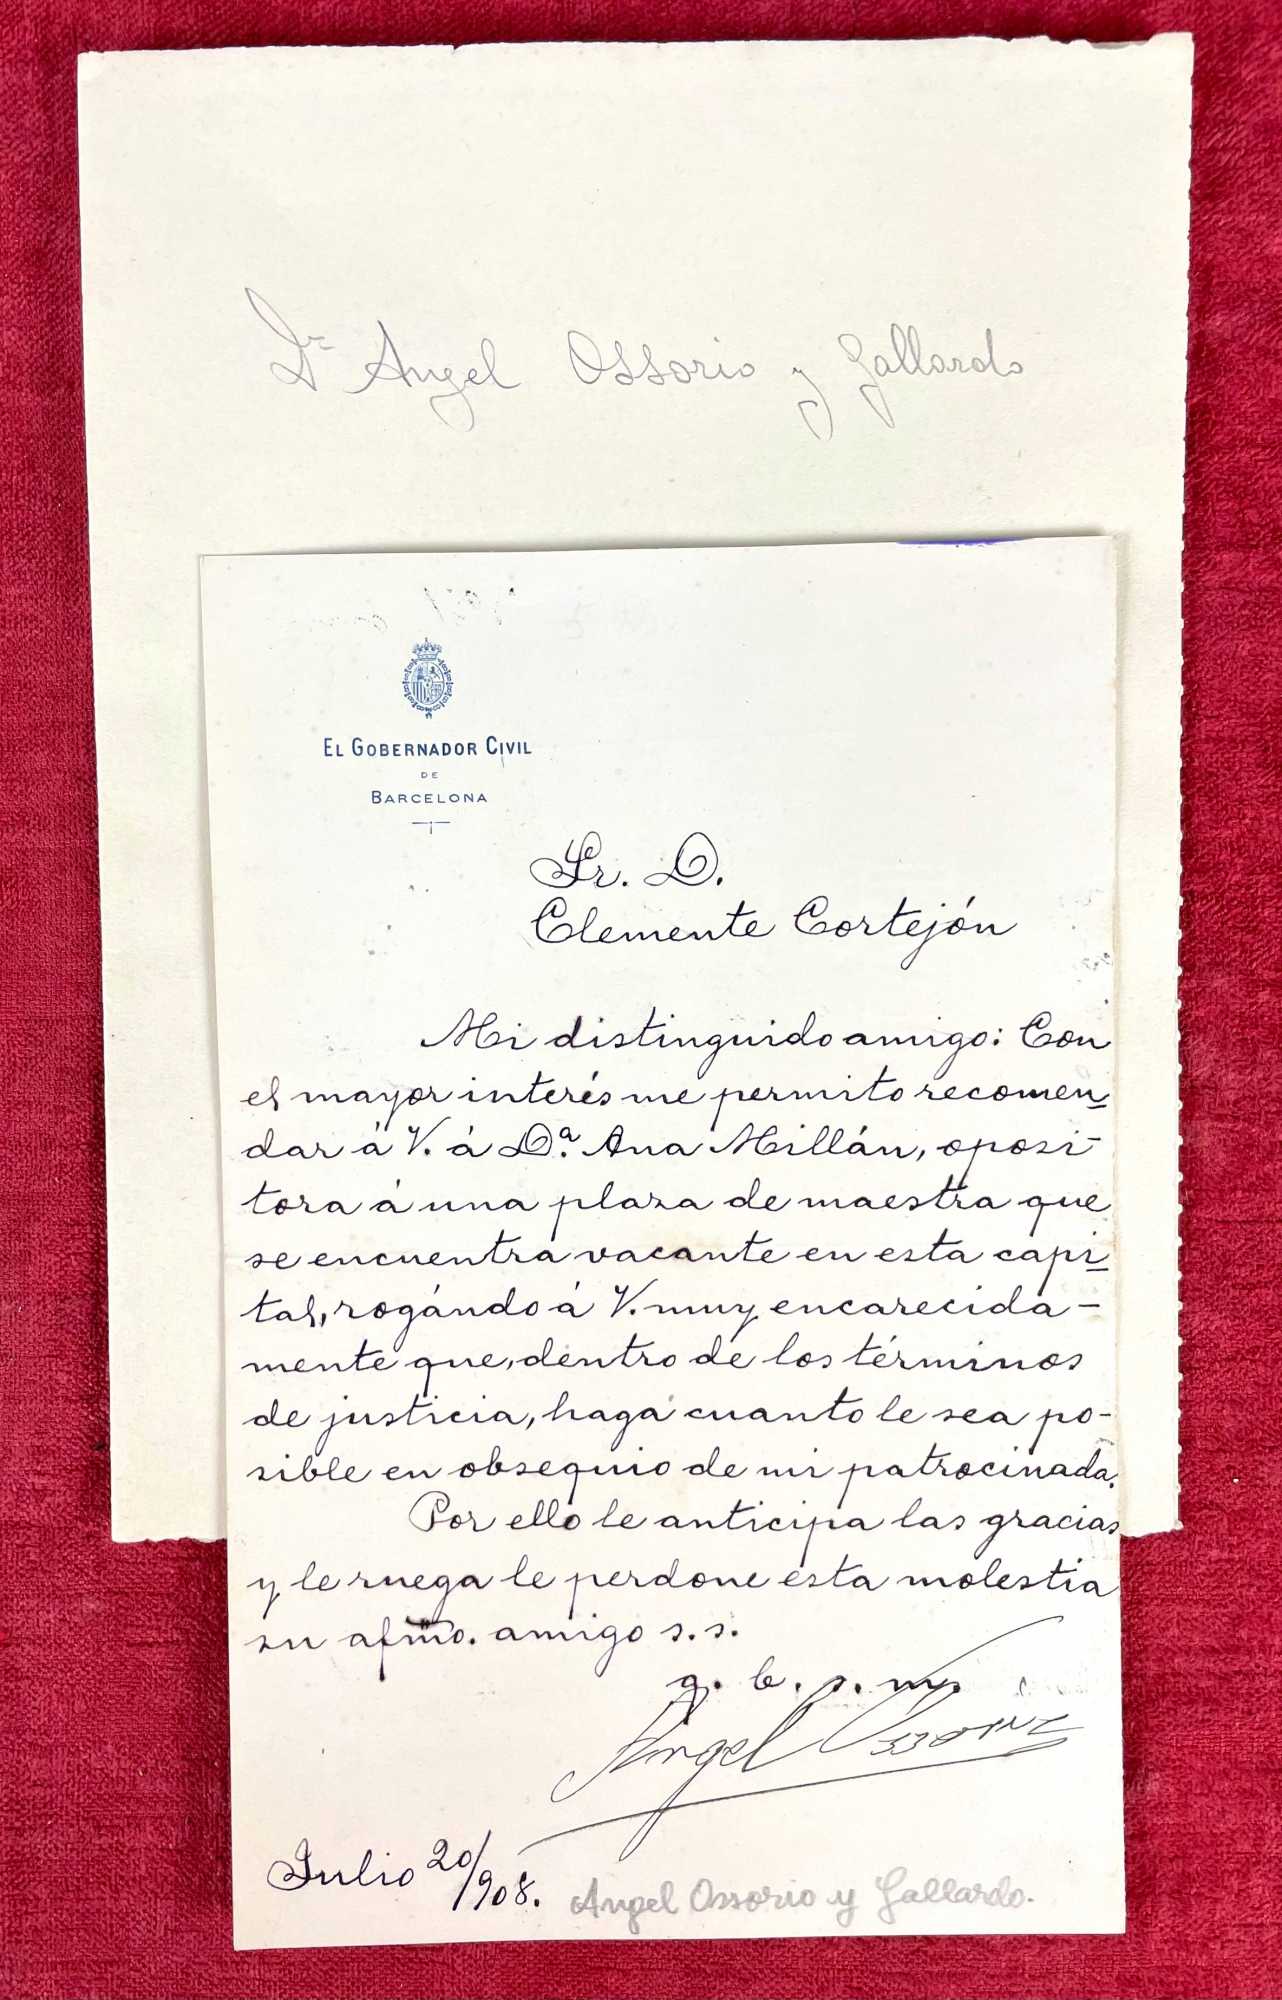 Dn Angel Ossorio y Gallardo
EL GOBERNADOR CIVIL
DE
BARCELONA
Sr. D.
Clemente Cortejón
Mi distinguido amigo: Con
el mayor interés me permito recomen
dar á V. á Dª. Ana Millán, oposi-
tora á una plaza de maestra que
se encuentra vacante en esta capi
tal, rogándo á V. muy encarecida-
mente que, dentro de los términos
de justicia, haga cuanto le sea po-
sible en obsequio de mi patrocinada.
Por ello le anticipa las gracias
y le ruega le perdone esta molestia
su afmo. amigo s. s.
q. b. s. m.
Angel Ossorio
Julio 20/908.
Angel Ossorio y Gallardo.